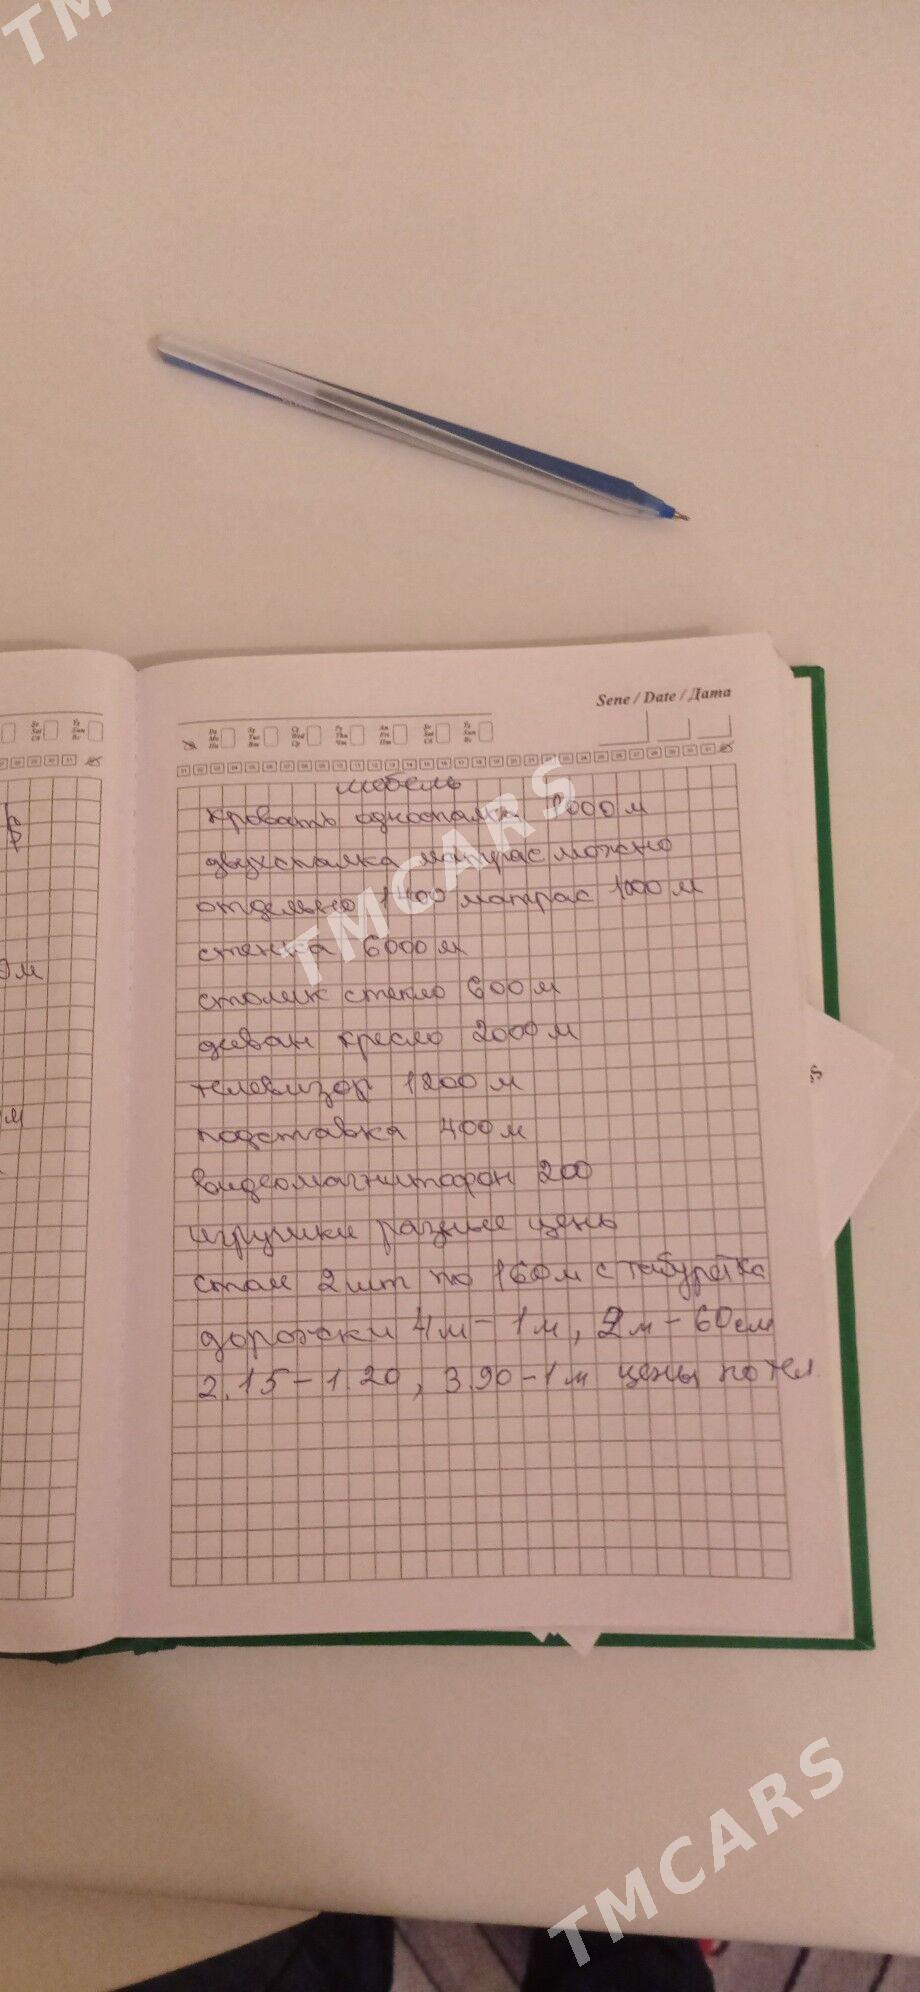 TM
Sene / Date / Дата
мебель
кровать односпалка 1000 м
двухспалка матрас можно
отдельно 1400 матрас 1000 м
стенка 6000 м
столик стекло 600 м
диван кресло 2000 м
телевизор 1800 м
подставка 400 м
видеомагнитофон 200
игрушки разные цены
стол 2 шт по 160 м с табуретка
дорожки 4 м - 1 м, 2 м - 60 см
2.15 - 1.20, 3.90 - 1 м цены по тел.
TMCARS
TMCARS